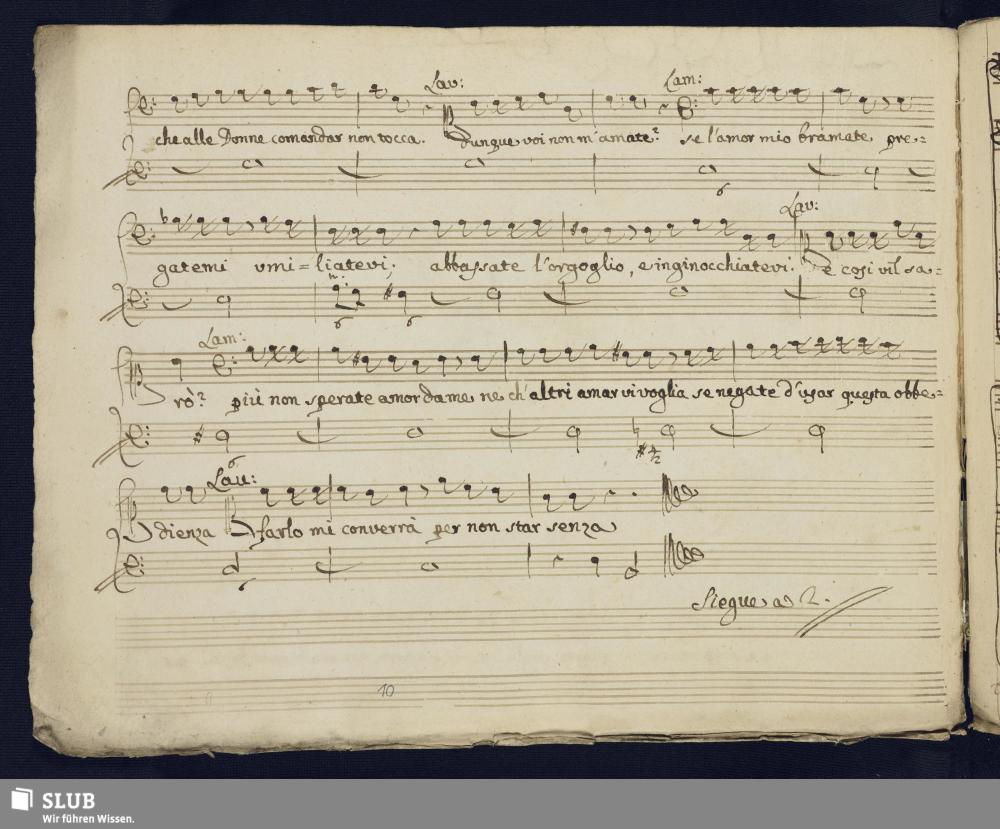 Lav: Lam:
che alle Donne comandar non tocca. dunque voi non m'amate? se l'amor mio bramate pre=
6
Lav:
gatemi umi=liatevi; abbassate l'orgoglio, e inginocchiatevi. e cosi vil sa=
6 6
Lam:
rò? più non sperate amor da me ne ch'altri amar vi voglia se negate d'usar questa obbe=
6
Lau:
dienza farlo mi converrà per non star senza
6
Siegue a 2.
10
SLUB
Wir führen Wissen.